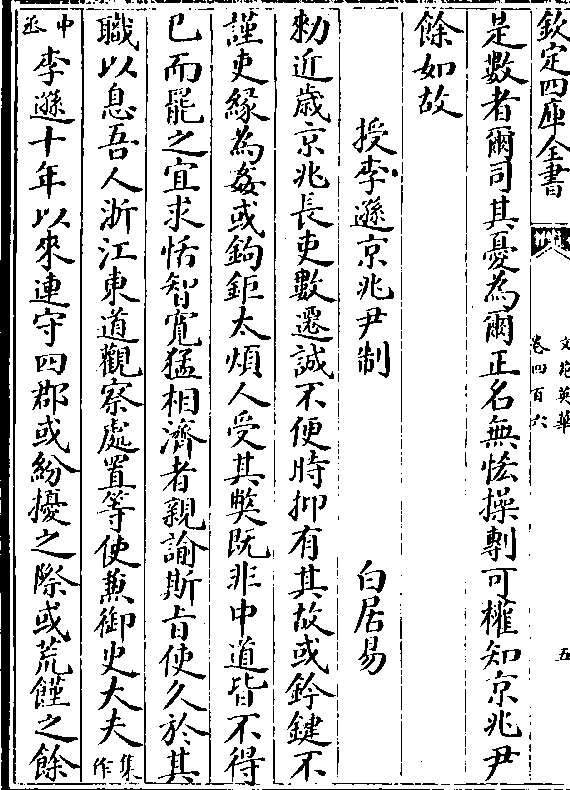 欽定四庫全書
文苑英華
卷四百六
五
是數者爾司其憂為爾正名無恡操剸可權知京兆尹
餘如故
授李遜京兆尹制
白居易
勑近歲京兆長吏數遷誠不便時抑有其故或鈐鍵不
謹吏緣為姦或鉤鉅太煩人受其弊既非中道皆不得
已而罷之宜求恬智寛猛相濟者親諭斯旨使久於其
職以息吾人浙江東道觀察處置等使兼御史大夫集作
中丞李遜十年以來連守四郡或紛擾之際或荒饉之餘